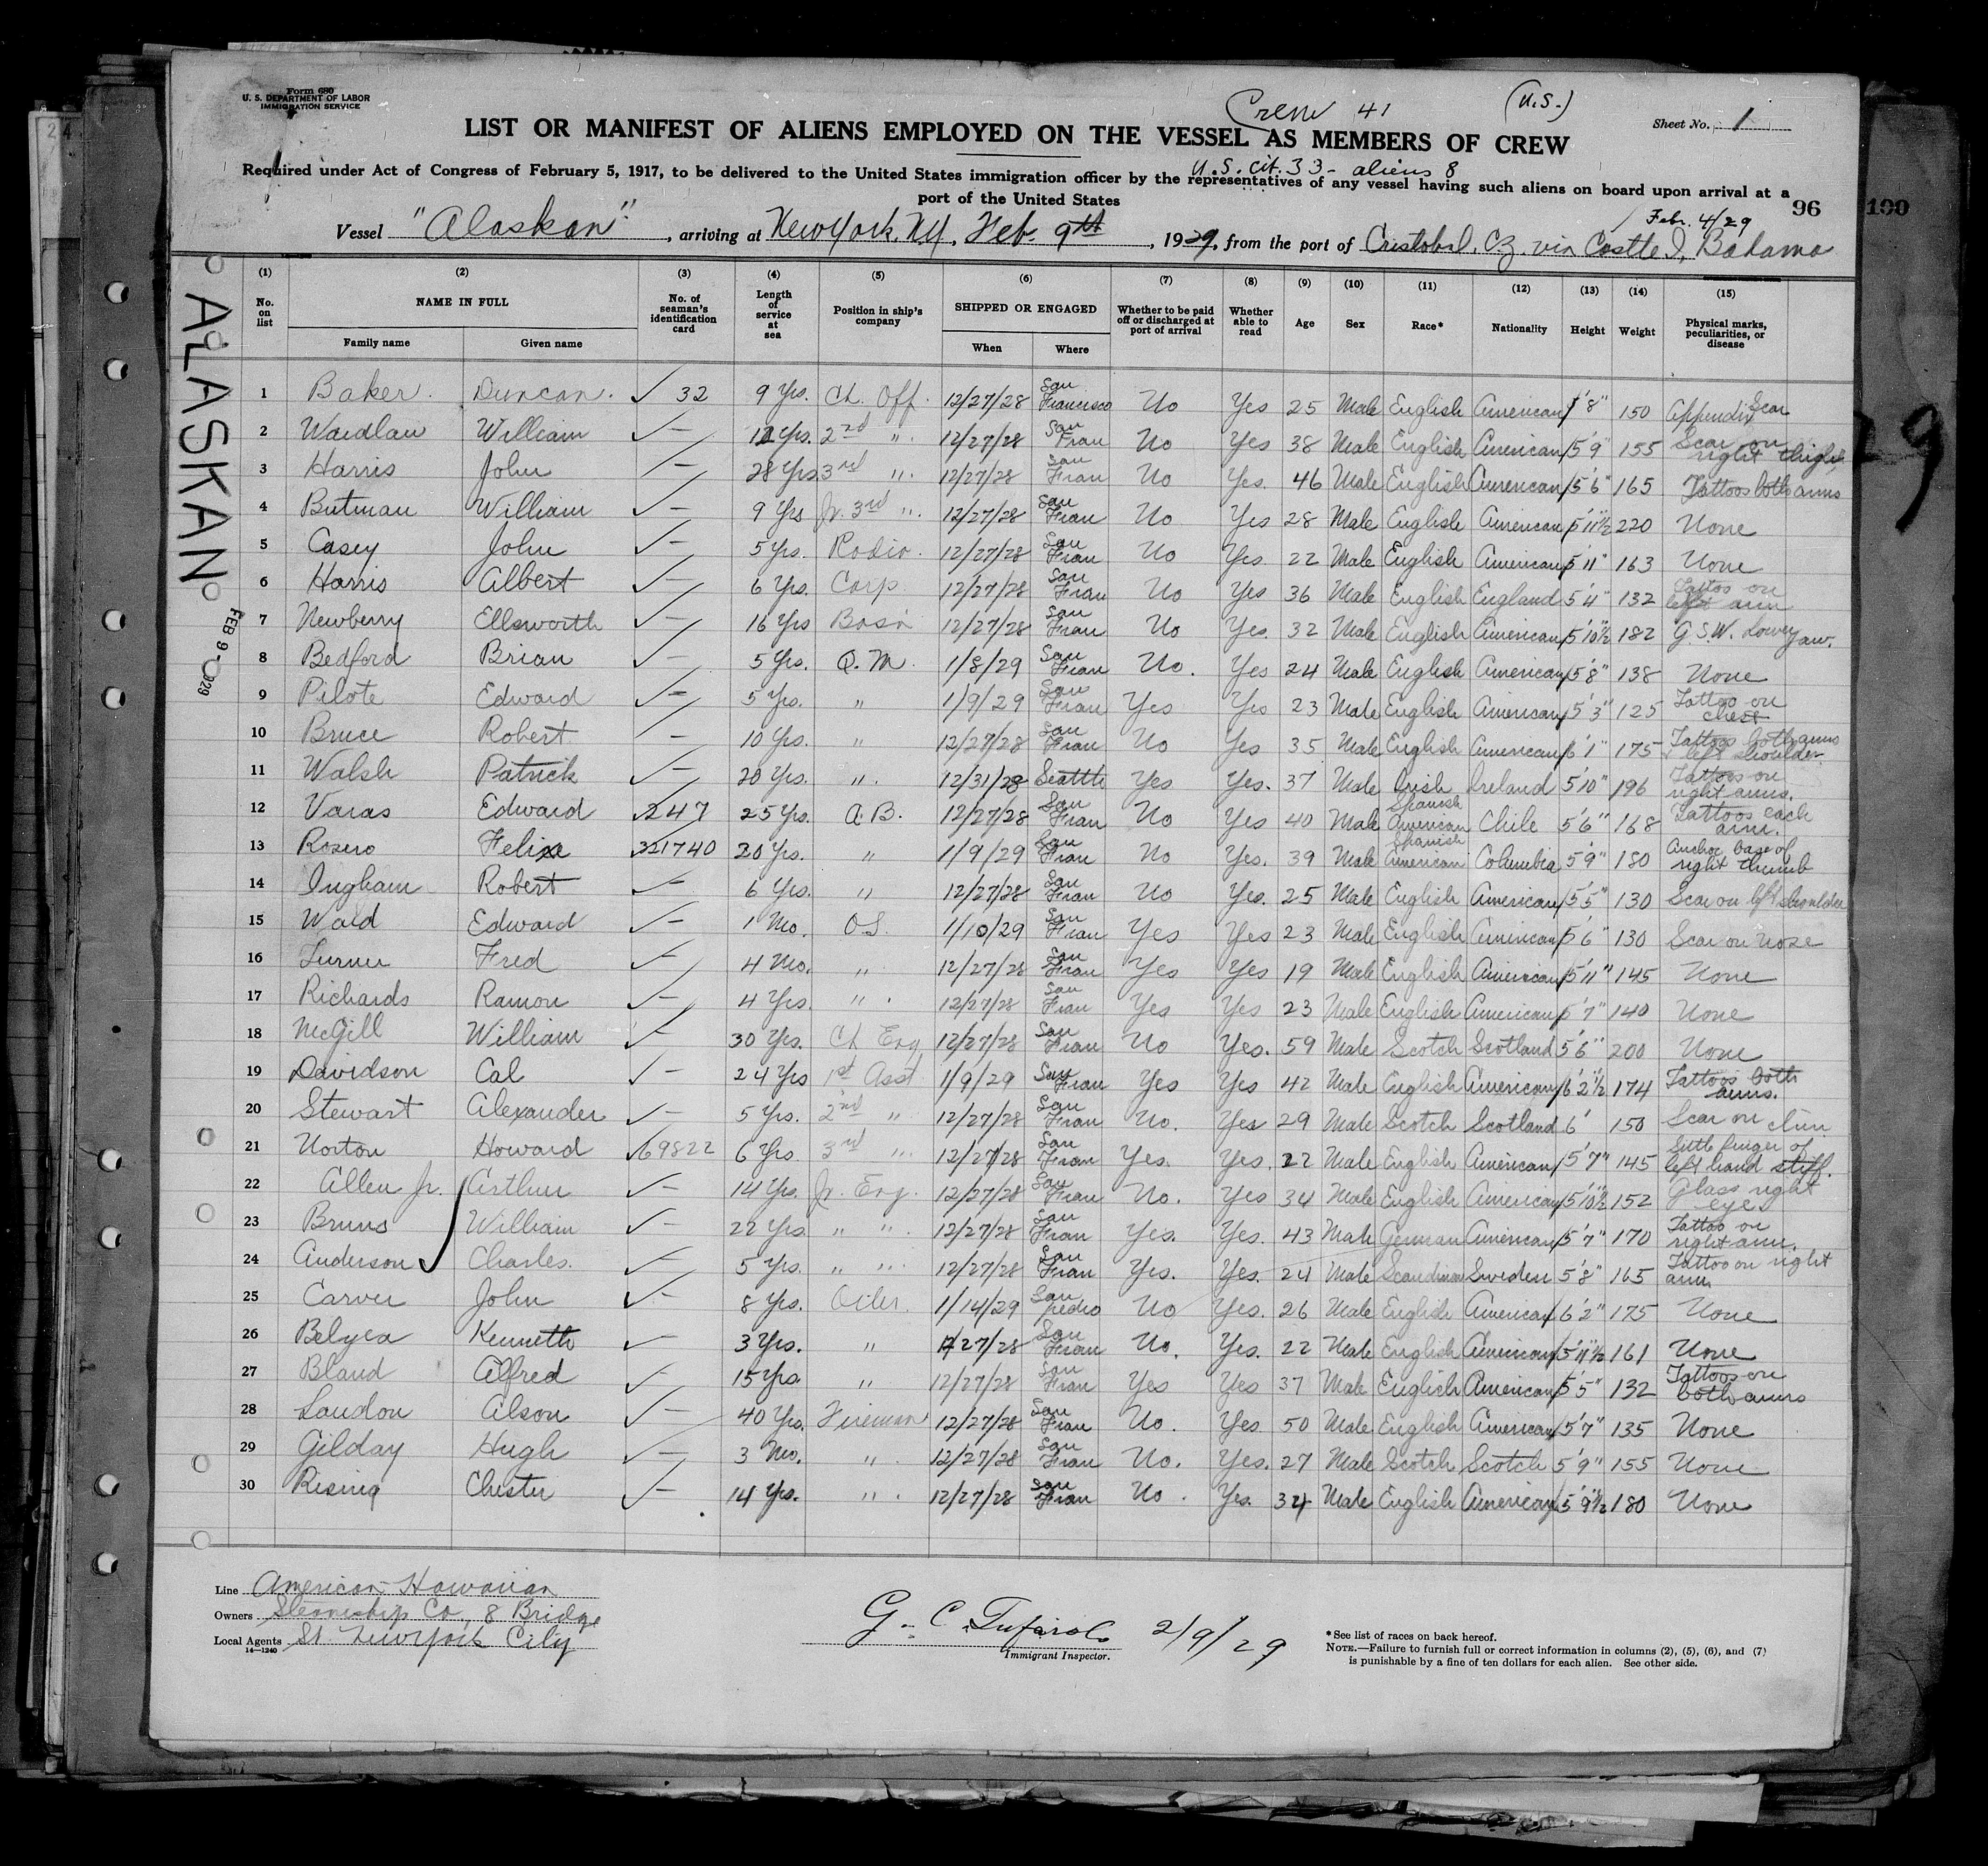 Form 680
U. S. DEPARTMENT OF LABOR
IMMIGRATION SERVICE
Crew 41 (U.S.)
Sheet No. 1
LIST OR MANIFEST OF ALIENS EMPLOYED ON THE VESSEL AS MEMBERS OF CREW
U.S. cit. 33 - aliens 8
Required under Act of Congress of February 5, 1917, to be delivered to the United States immigration officer by the representatives of any vessel having such aliens on board upon arrival at a
port of the United States
96 100
Febr. 4/29
Vessel "Alaskan", arriving at New York, NY, Feb. 9th, 1929, from the port of Cristobal, C.Z. via Castle I, Bahama
ALASKAN
FEB 9 - 1929
29
(1) (2) (3) (4) (5) (6) (7) (8) (9) (10) (11) (12) (13) (14) (15)
No. on list NAME IN FULL No. of seaman's identification card Length of service at sea Position in ship's company SHIPPED OR ENGAGED Whether to be paid off or discharged at port of arrival Whether able to read Age Sex Race* Nationality Height Weight Physical marks, peculiarities, or disease
Family name Given name When Where
1 Baker Duncan 32 9 Yrs. Ch. Off. 12/27/28 San Francisco No Yes 25 Male English American 5'8" 150 Appendix Scar
2 Wardlaw William — 12 Yrs. 2nd " 12/27/28 San Fran No Yes 38 Male English American 5'9" 155 Scar on right thigh
3 Harris John — 28 Yrs. 3rd " 12/27/28 San Fran No Yes. 46 Male English American 5'6" 165 Tattoos both arms
4 Butman William — 9 Yrs Jr. 3rd " 12/27/28 San Fran No Yes 28 Male English American 5'11½" 220 None
5 Casey John — 5 Yrs. Radio. 12/27/28 San Fran No Yes. 22 Male English American 5'11" 163 None
6 Harris Albert — 6 Yrs. Carp 12/27/28 San Fran No Yes 36 Male English England 5'4" 132 Tattoo on left arm
7 Newberry Ellsworth — 16 Yrs Bosn 12/27/28 San Fran No Yes. 32 Male English American 5'10½" 182 G.S.W. Lower jaw.
8 Bedford Brian — 5 Yrs. Q.M. 1/8/29 San Fran No. Yes 24 Male English American 5'8" 138 None
9 Pilote Edward — 5 Yrs. " 1/9/29 San Fran Yes Yes 23 Male English American 5'3" 125 Tattoo on chest
10 Bruce Robert — 10 Yrs. " 12/27/28 San Fran No Yes 35 Male English American 6'1" 175 Tattoos both arms left shoulder
11 Walsh Patrick — 20 Yrs. " 12/31/28 Seattle Yes Yes. 37 Male Irish Ireland 5'10" 196 Tattoos on right arms.
12 Varas Edward 247 25 Yrs. A.B. 12/27/28 San Fran No Yes 40 Male Spanish American Chile 5'6" 168 Tattoos each arm.
13 Rosero Felix 321740 20 Yrs. " 1/9/29 San Fran No Yes. 39 Male Spanish American Columbia 5'9" 180 Anchor base of right thumb
14 Ingham Robert — 6 Yrs. " 12/27/28 San Fran No Yes. 25 Male English American 5'5" 130 Scar on left shoulder
15 Waid Edward — 1 Mo. OS. 1/10/29 San Fran Yes Yes 23 Male English American 5'6" 130 Scar on nose
16 Turner Fred — 4 Mo. " 12/27/28 San Fran Yes Yes 19 Male English American 5'11" 145 None
17 Richards Ramon — 4 Yrs. " 12/27/28 San Fran Yes Yes 23 Male English American 5'7" 140 None
18 McGill William — 30 Yrs. Ch Eng 12/27/28 San Fran No Yes. 59 Male Scotch Scotland 5'6" 200 None
19 Davidson Cal — 24 Yrs 1st Asst 1/9/29 San Fran Yes Yes 42 Male English American 6'2½" 174 Tattoos both arms.
20 Stewart Alexander — 5 Yrs. 2nd " 12/27/28 San Fran No. Yes 29 Male Scotch Scotland 6' 150 Scar on chin
21 Norton Howard 69822 6 Yrs. 3rd " 12/27/28 San Fran Yes. Yes. 22 Male English American 5'7" 145 Little finger of left hand stiff.
22 Allen Jr. Arthur — 14 Yrs. Jr. Eng. 12/27/28 San Fran No. Yes 34 Male English American 5'10½" 152 Glass right eye
23 Bruns William — 22 Yrs. " " 12/27/28 San Fran Yes. Yes. 43 Male German American 5'7" 170 Tattoo on right arm.
24 Anderson Charles. — 5 Yrs. " " 12/27/28 San Fran Yes. Yes. 24 Male Sweden 5'8" 165 Tattoo on right arm
25 Carver John — 8 Yrs. Oiler. 1/14/29 San pedro No Yes. 26 Male English American 6'2" 175 None
26 Belyea Kenneth — 3 Yrs. " 12/27/28 San Fran No. Yes. 22 Male English American 5'11½" 161 None
27 Bland Alfred — 15 Yrs " 12/27/28 San Fran Yes Yes 37 Male English American 5'5" 132 Tattoos on both arms
28 Loudon Alson — 40 Yrs. Fireman 12/27/28 San Fran No. Yes. 50 Male English American 5'7" 135 None
29 Gilday Hugh — 3 Mo. " 12/27/28 San Fran No. Yes. 27 Male Scotch Scotch 5'9" 155 None
30 Rising Chester — 14 Yrs. " 12/27/28 San Fran No. Yes. 34 Male English American 5'9½" 180 None
Line American-Hawaiian
Owners Steamship Co, 8 Bridge
Local Agents St. New York City
14—1240
G. C. Tufarolo 2/9/29
Immigrant Inspector.
*See list of races on back hereof.
NOTE.—Failure to furnish full or correct information in columns (2), (5), (6), and (7)
is punishable by a fine of ten dollars for each alien. See other side.